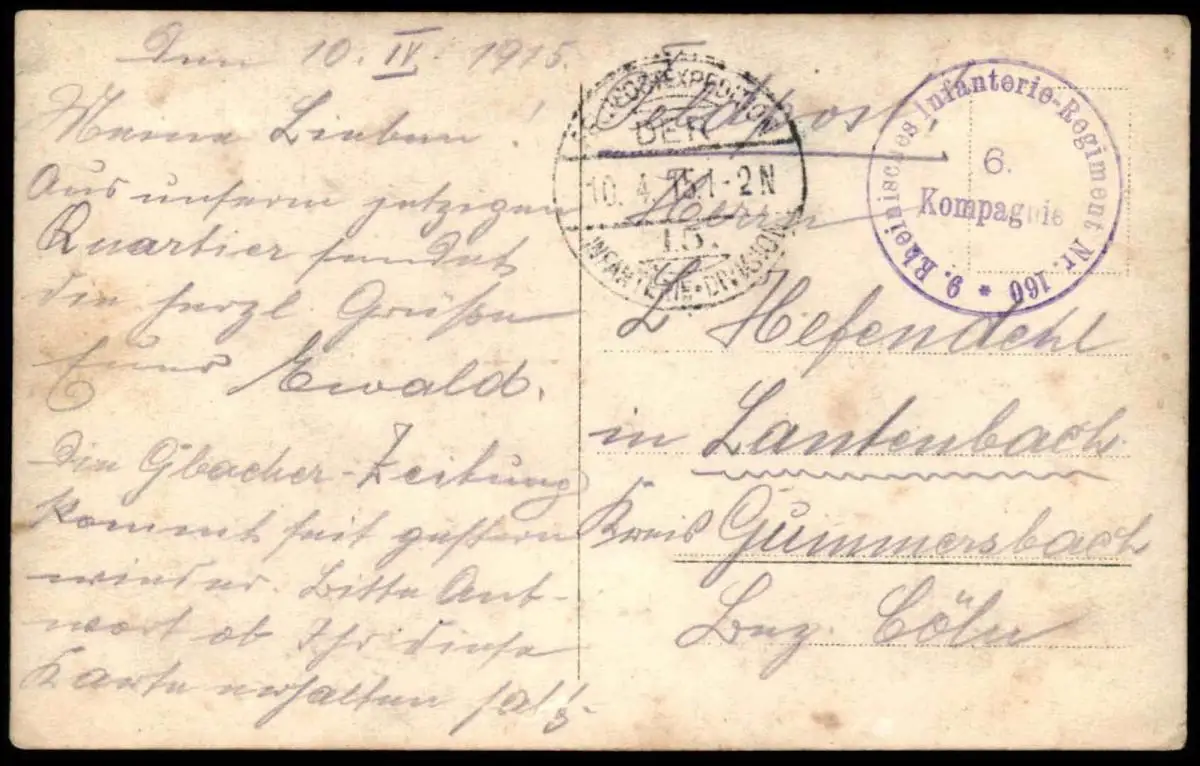 Den 10. IV. 1915.
Meine Lieben!
Aus unserm jetzigen
Quartier sendet
die herzl. Grüße
Euer Ewald.
Die G'bacher-Zeitung
kommt seit gestern
wieder. Bitte Ant-
wort ob Ihr diese
Karte erhalten
Feldpost!
Herrn
L. Hefendehl
in Lantenbach
Kreis Gummersbach
Bez. Cöln
EXPEDITION
DER
10. 4. 15. 1-2 N
15.
INFANTERIE-DIVISION
9. Rheinisches Infanterie-Regiment Nr. 160 *
6.
Kompagnie